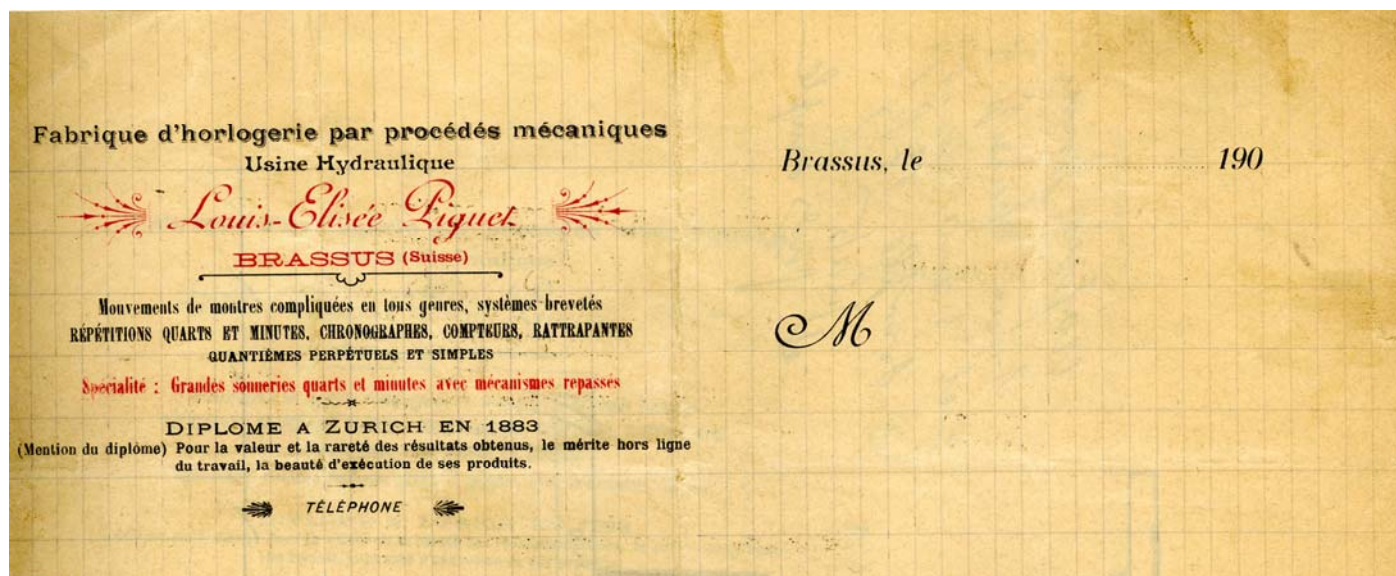 Fabrique d'horlogerie par procédés mécaniques
Usine Hydraulique
Louis-Elisée Piguet
BRASSUS (Suisse)
Mouvements de montres compliquées en tous genres, systèmes brevetés
RÉPÉTITIONS QUARTS ET MINUTES, CHRONOGRAPHES, COMPTEURS, RATTRAPANTES
QUANTIÈMES PERPÉTUELS ET SIMPLES
Spécialité : Grandes sonneries quarts et minutes avec mécanismes repassés
DIPLOME A ZURICH EN 1883
(Mention du diplôme) Pour la valeur et la rareté des résultats obtenus, le mérite hors ligne
du travail, la beauté d'exécution de ses produits.
TÉLÉPHONE
Brassus, le 190
M